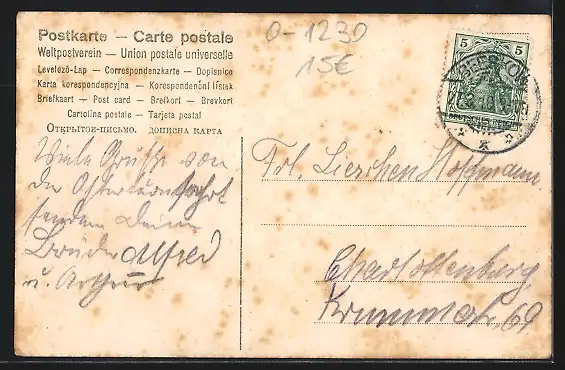 Postkarte — Carte postale
Weltpostverein — Union postale universelle
Levelező-Lap — Correspondenzkarte — Dopisnice
Karta korespondencyjna — Korespondenční lístek
Briefkaart — Post card — Brefkort — Brevkort
Cartolina postale — Tarjeta postal
Открытое-письмо. дописна карта
0-1230
15€
5 5
DEUTSCHES REICH
Viele Grüsse von
der Osterturnfahrt
senden Deine
Brüder Alfred
u. Arthur
Frl. Lieschen Hoffmann
Charlottenburg
Krummestr. 69